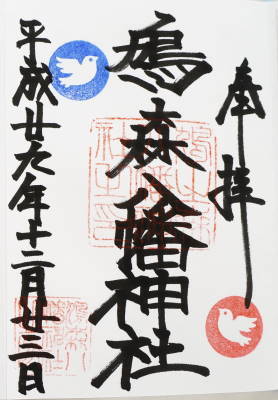 奉拝
鳩森八幡神社
平成廿九年十二月廿三日